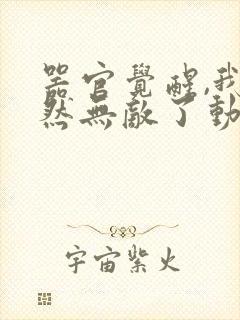 器官覺醒,我
然無敵了動
宇宙紫火